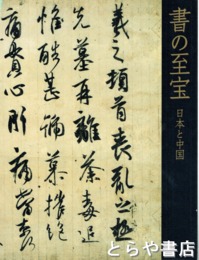 書の至宝
日本と中国
羲之頓首喪乱之極
先墓再離荼毒追
惟酷甚號慕摧絶
痛貫心肝痛當奈
とらや書店